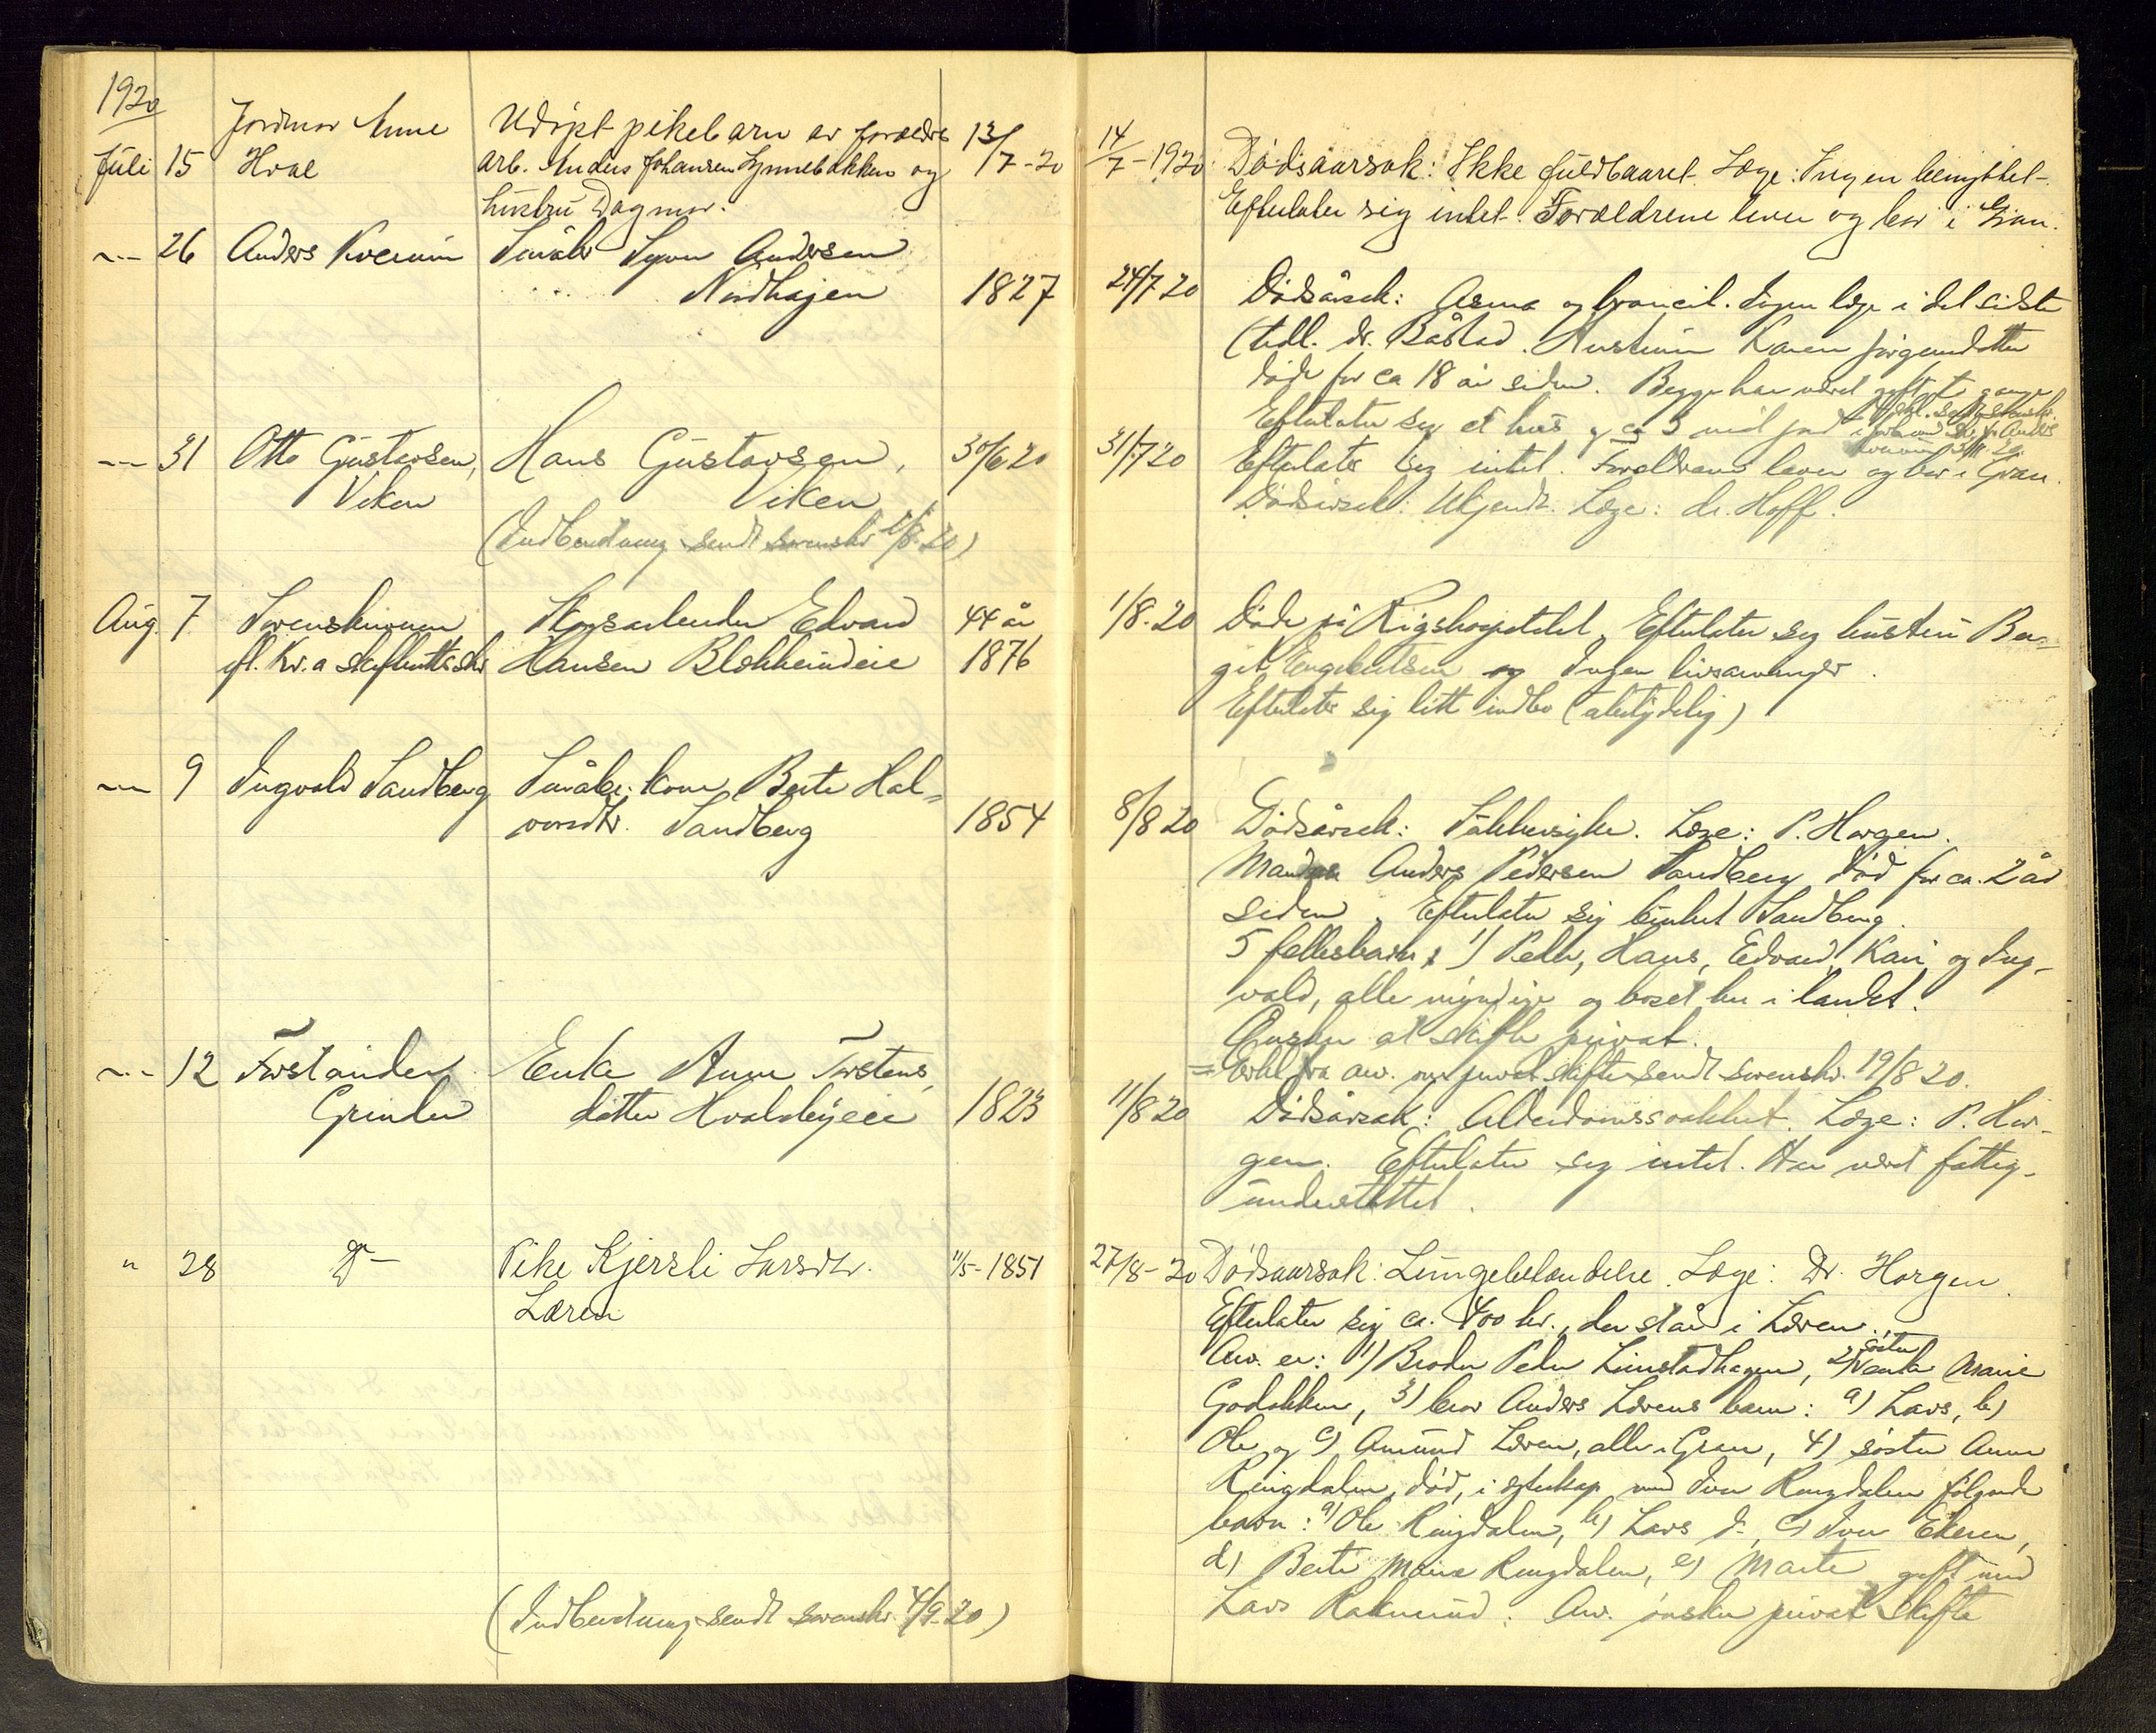 1920
Jordmor Anne
Juli 15 Hval
Udøpt pikebarn av foreldre
arb. Anders Johansen Lynnebakken og
hustru Dagmar.
13/7-20
14/7-1920
Dødsaarsak: Ikke fuldbaaret. Læge: Ingen benyttet.
Efterlater sig intet. Forældrene lever og bor i Gran.
-"- 26 Anders Kvernin
Småbr. Syver Andersen
Nordhagen
1827
24/7 20
Dødsårsak: Asma og broncit. Ingen læge i det sidste
(tidl. dr. Båstad. Hustruen Karen Jørgensdatter
døde for ca 18 år siden. Begge har været gift gange
Efterlater sig et hus og ca 5 mål jord
-"- 31 Otto Gustavsen,
Viken
Hans Gustavsen,
Viken
(Indberetning sendt sorenskr. /8-20)
30/6 20
31/7 20
Efterlater sig intet. Forældrene lever og bor i Gran.
Dødsårsak: Ukjendt. Læge: dr. Hoff.
Aug. 7 Sorenskriveren
Skogsarbeider Edvard
Hansen Blokkeindeie
44 år
1876
1/8-20
Døde på Rigshospitalet. Efterlater sig hustru Ber-
git Engebretsen og Ingen livsarvinger.
Efterlater sig litt indbo (ubetydelig)
-"- 9 Ingvald Sandberg
Småbr. kone Berte Hal-
vorsdtr. Sandberg
1854
8/8 20
Dødsårsak: Sukkersyke. Læge: P. Horgen.
Manden Anders Pedersen Sandberg død for ca. 2 år
siden. Efterlater sig bruket Sandberg.
5 fellesbarn: 1) Peder, Hans, Edvard, Kari og Ing-
vald, alle myndige og boset her i landet.
Ønsker at skifte privat.
= Erkl. fra arv. om privat skifte sendt sorenskr. 19/8 20.
-"- 12 Forstander
Grinder
Enke Anne Torstens-
datter Hvalsbyeie
1823
11/8 20
Dødsårsak: Alderdomssvakhet. Læge: P. Hor-
gen. Efterlater sig intet. Har været fattig-
understøttet.
" 28 Do
Pike Kjersti Larsdtr.
Læren
11/5-1851
27/8-20
Dødsaarsak: Lungebetændelse. Læge: Dr. Horgen.
Efterlater sig ca. 400 kr., der står i Læren.
Arv. er: 1) Broder Peder Limstadhagen, 2) søster enke Marie
Godakken, 3) bror Anders Lærens barn: a) Lars, b)
Ole og c) Amund Læren, alle i Gran, 4) søster Anne
Ringdalen, død, i egteskap med Iver Ringdalen følgende
barn: a) Ole Ringdalen, b) Lars do, c) Iver Ekeren,
d) Berte Marie Ringdalen, e) Marte gift med
Lars Raknerud. Arv. ønsker privat skifte
(Indberetning sendt sorenskr. 4/9-20)